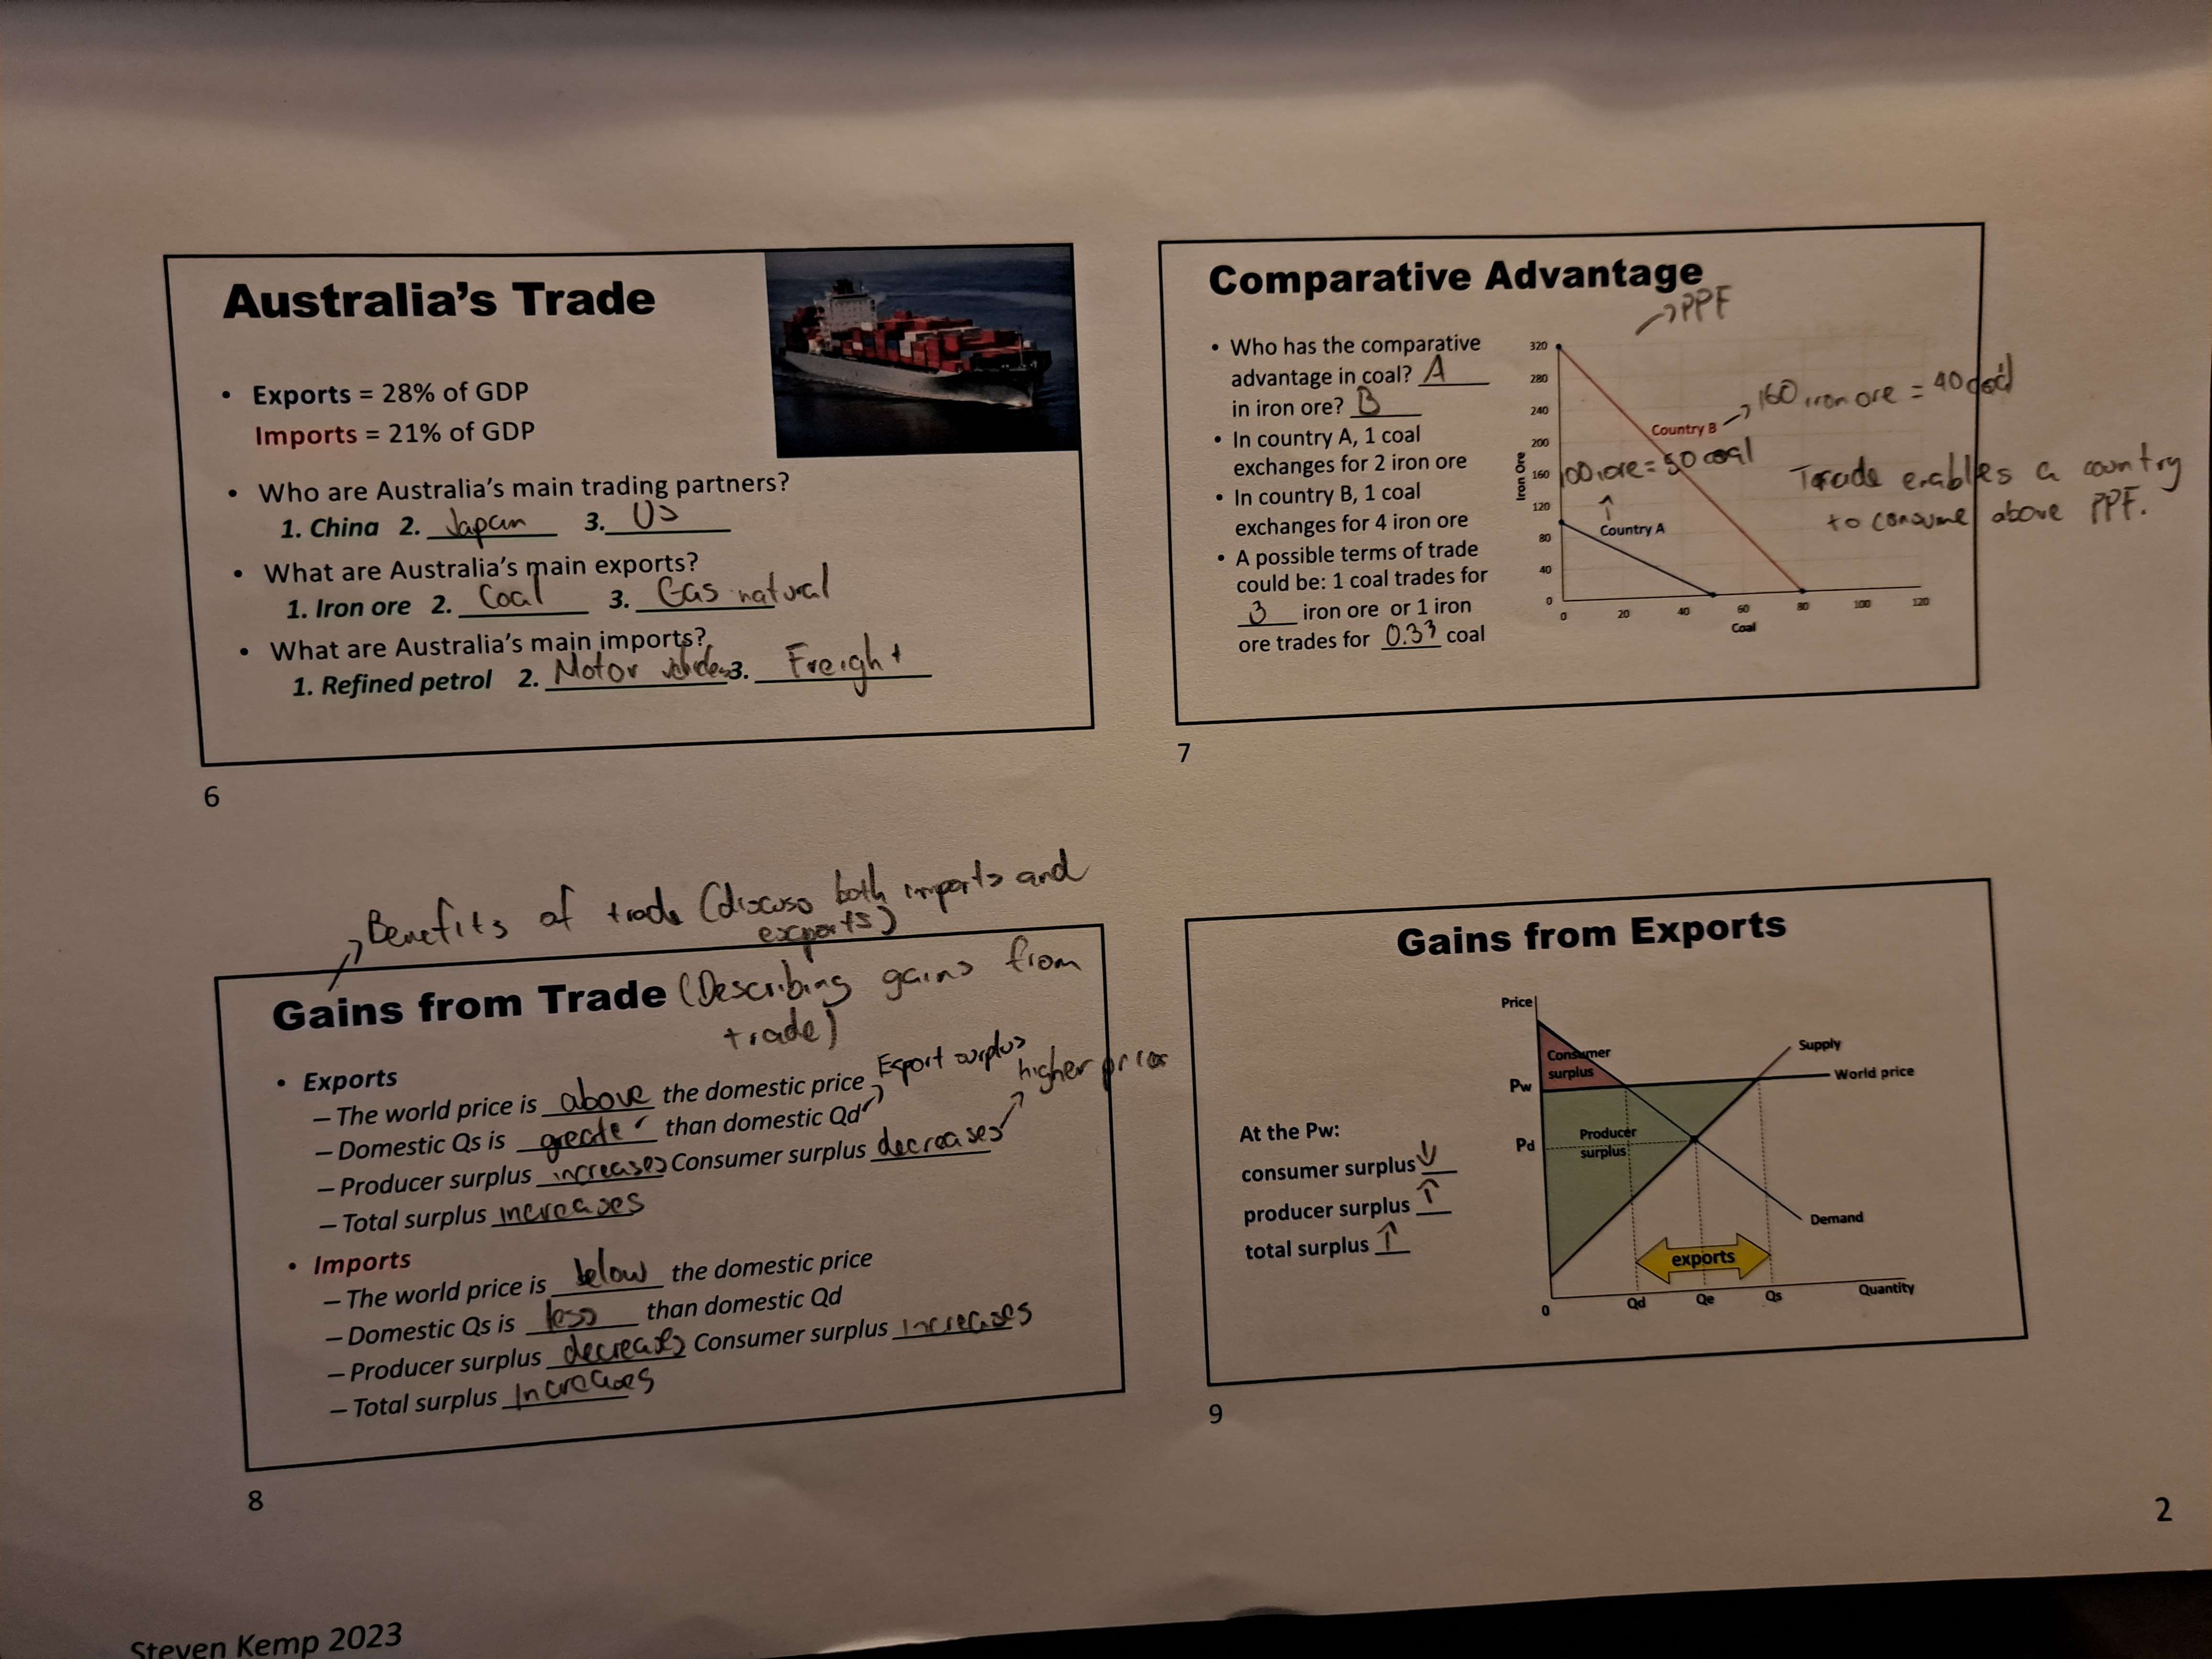 Australia's Trade
• Exports = 28% of GDP
Imports = 21% of GDP
• Who are Australia's main trading partners?
1. China 2. Japan 3. US
• What are Australia's main exports?
1. Iron ore 2. Coal 3. Gas natural
• What are Australia's main imports?
1. Refined petrol 2. Motor vehicles 3. Freight
6
Comparative Advantage
PPF
• Who has the comparative
advantage in coal? A
in iron ore? B
• In country A, 1 coal
exchanges for 2 iron ore
• In country B, 1 coal
exchanges for 4 iron ore
• A possible terms of trade
could be: 1 coal trades for
3 iron ore or 1 iron
ore trades for 0.33 coal
320
280
240
200
160
120
80
40
0
Iron Ore
0 20 40 60 80 100 120
Coal
Country B
160 iron ore = 40 coal
100 ore = 50 coal
Country A
Trade enables a country
to consume above PPF.
7
Benefits of trade (discuss both imports and
exports)
Gains from Trade (Describing gains from
trade)
• Exports
– The world price is above the domestic price
– Domestic Qs is greater than domestic Qd
Export surplus
– Producer surplus increases Consumer surplus decreases
higher prices
– Total surplus increases
• Imports
– The world price is below the domestic price
– Domestic Qs is less than domestic Qd
– Producer surplus decreases Consumer surplus increases
– Total surplus Increases
8
Gains from Exports
At the Pw:
consumer surplus ↓
producer surplus ↑
total surplus ↑
Price
Consumer
surplus
Supply
Pw
World price
Pd
Producer
surplus
Demand
exports
0 Qd Qe Qs Quantity
9
2
Steven Kemp 2023